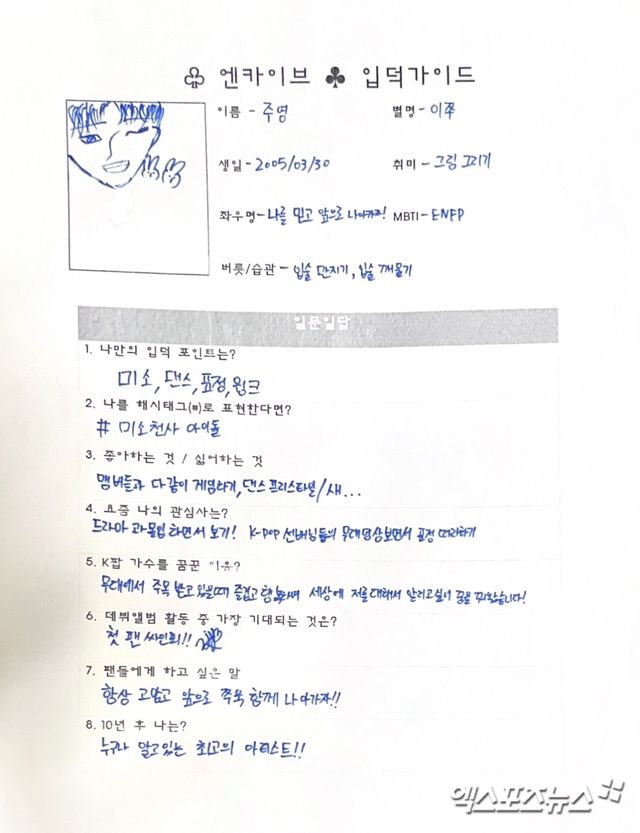 ♧ 엔카이브 ♣ 입덕가이드
이름 - 주영 별명 - 이쭈
생일 - 2005/03/30 취미 - 그림 그리기
좌우명 - 나를 믿고 앞으로 나아가자! MBTI - ENFP
버릇/습관 - 입술 만지기, 입술 깨물기
일문일답
1. 나만의 입덕 포인트는?
미소, 댄스, 표정, 윙크
2. 나를 해시태그(#)로 표현한다면?
# 미소천사 아이돌
3. 좋아하는 것 / 싫어하는 것
멤버들과 다같이 게임하기, 댄스 프리스타일/새...
4. 요즘 나의 관심사는?
드라마 과몰입 하면서 보기! K-POP 선배님들의 무대영상보면서 표정 따라하기
5. K팝 가수를 꿈꾼 이유?
무대에서 주목 받고 있을때 즐겁고 행복하며 세상에 저를 대해서 알리고싶어 꿈을 꿔왔습니다!
6. 데뷔앨범 활동 중 가장 기대되는 것은?
첫 팬 싸인회!!
7. 팬들에게 하고 싶은 말
항상 고맙고 앞으로 쭈욱 함께 나아가자!!
8. 10년 후 나는?
누구나 알고있는 최고의 아티스트!!
엑스포츠뉴스